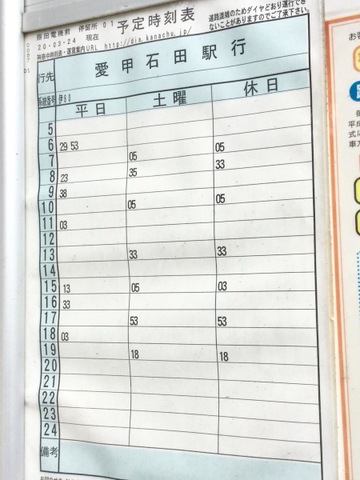 原田電機前 停留所 01 予定時刻表
20-03-24 現在
神奈中時刻表・運賃案内URL http://dia.kanachu.jp/
道路混雑のためダイヤどおり運行でき
ないことがありますのでご了承下さい。
行先 愛甲石田駅行
系統番号 伊60
平日 土曜 休日
5
6 29 53
7 05 05
8 23 35 33
9 38
10 05 05
11 03
12
13 33 33
14
15 13 05 03
16 33
17 53 53
18 03
19 18 18
20
21
22
23
24
備考